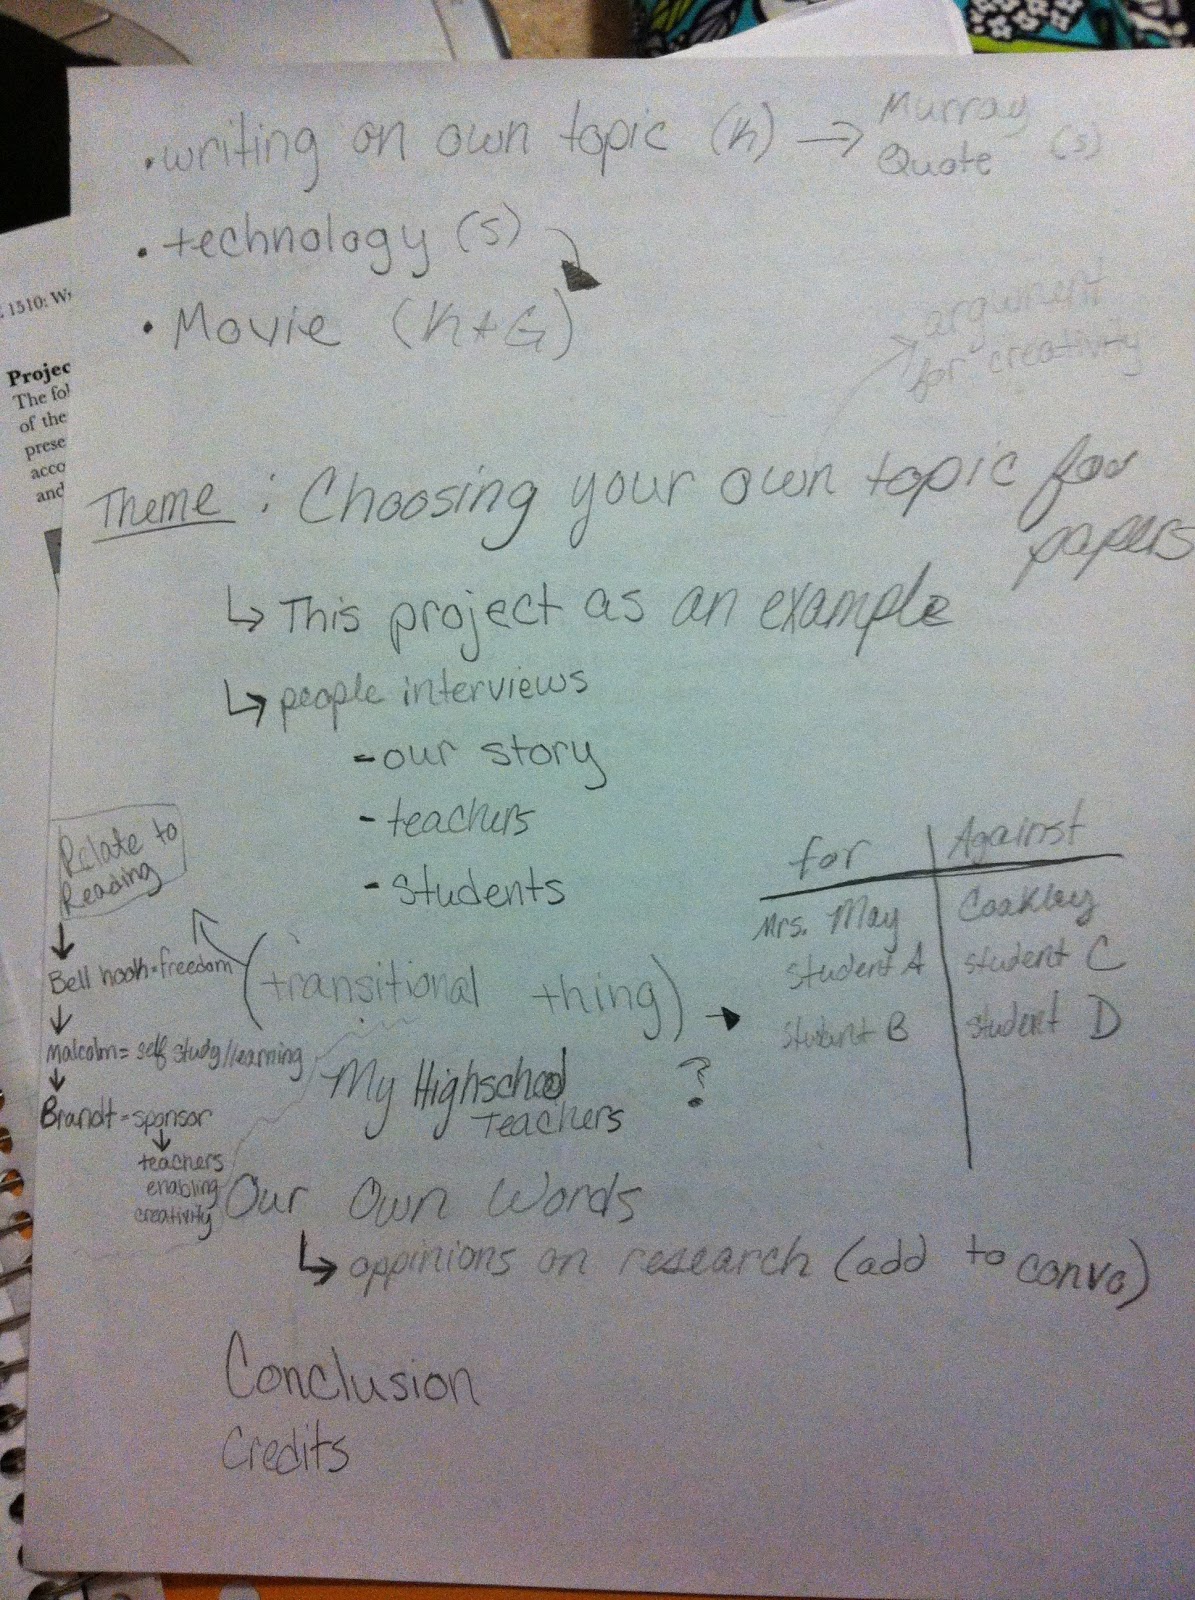 •writing on own topic (K) → Murray
Quote (S)
• technology (S)
• Movie (K+G)
argument
for creativity
Theme : Choosing your own topic for
papers
↳ This project as an example
↳ people interviews
- our story
- teachers
- students
Relate to
Reading
Bell hook = freedom
Malcolm = self study/learning
Brandt = sponsor
teachers
enabling
creativity
(transitional thing)
for | Against
Mrs. May | Coakley
student A | student C
student B | student D
My Highschool ?
Teachers
Our Own Words
↳ oppinions on research (add to convo)
Conclusion
Credits
1510:
Projec
The fol
of the
prese
acco
and